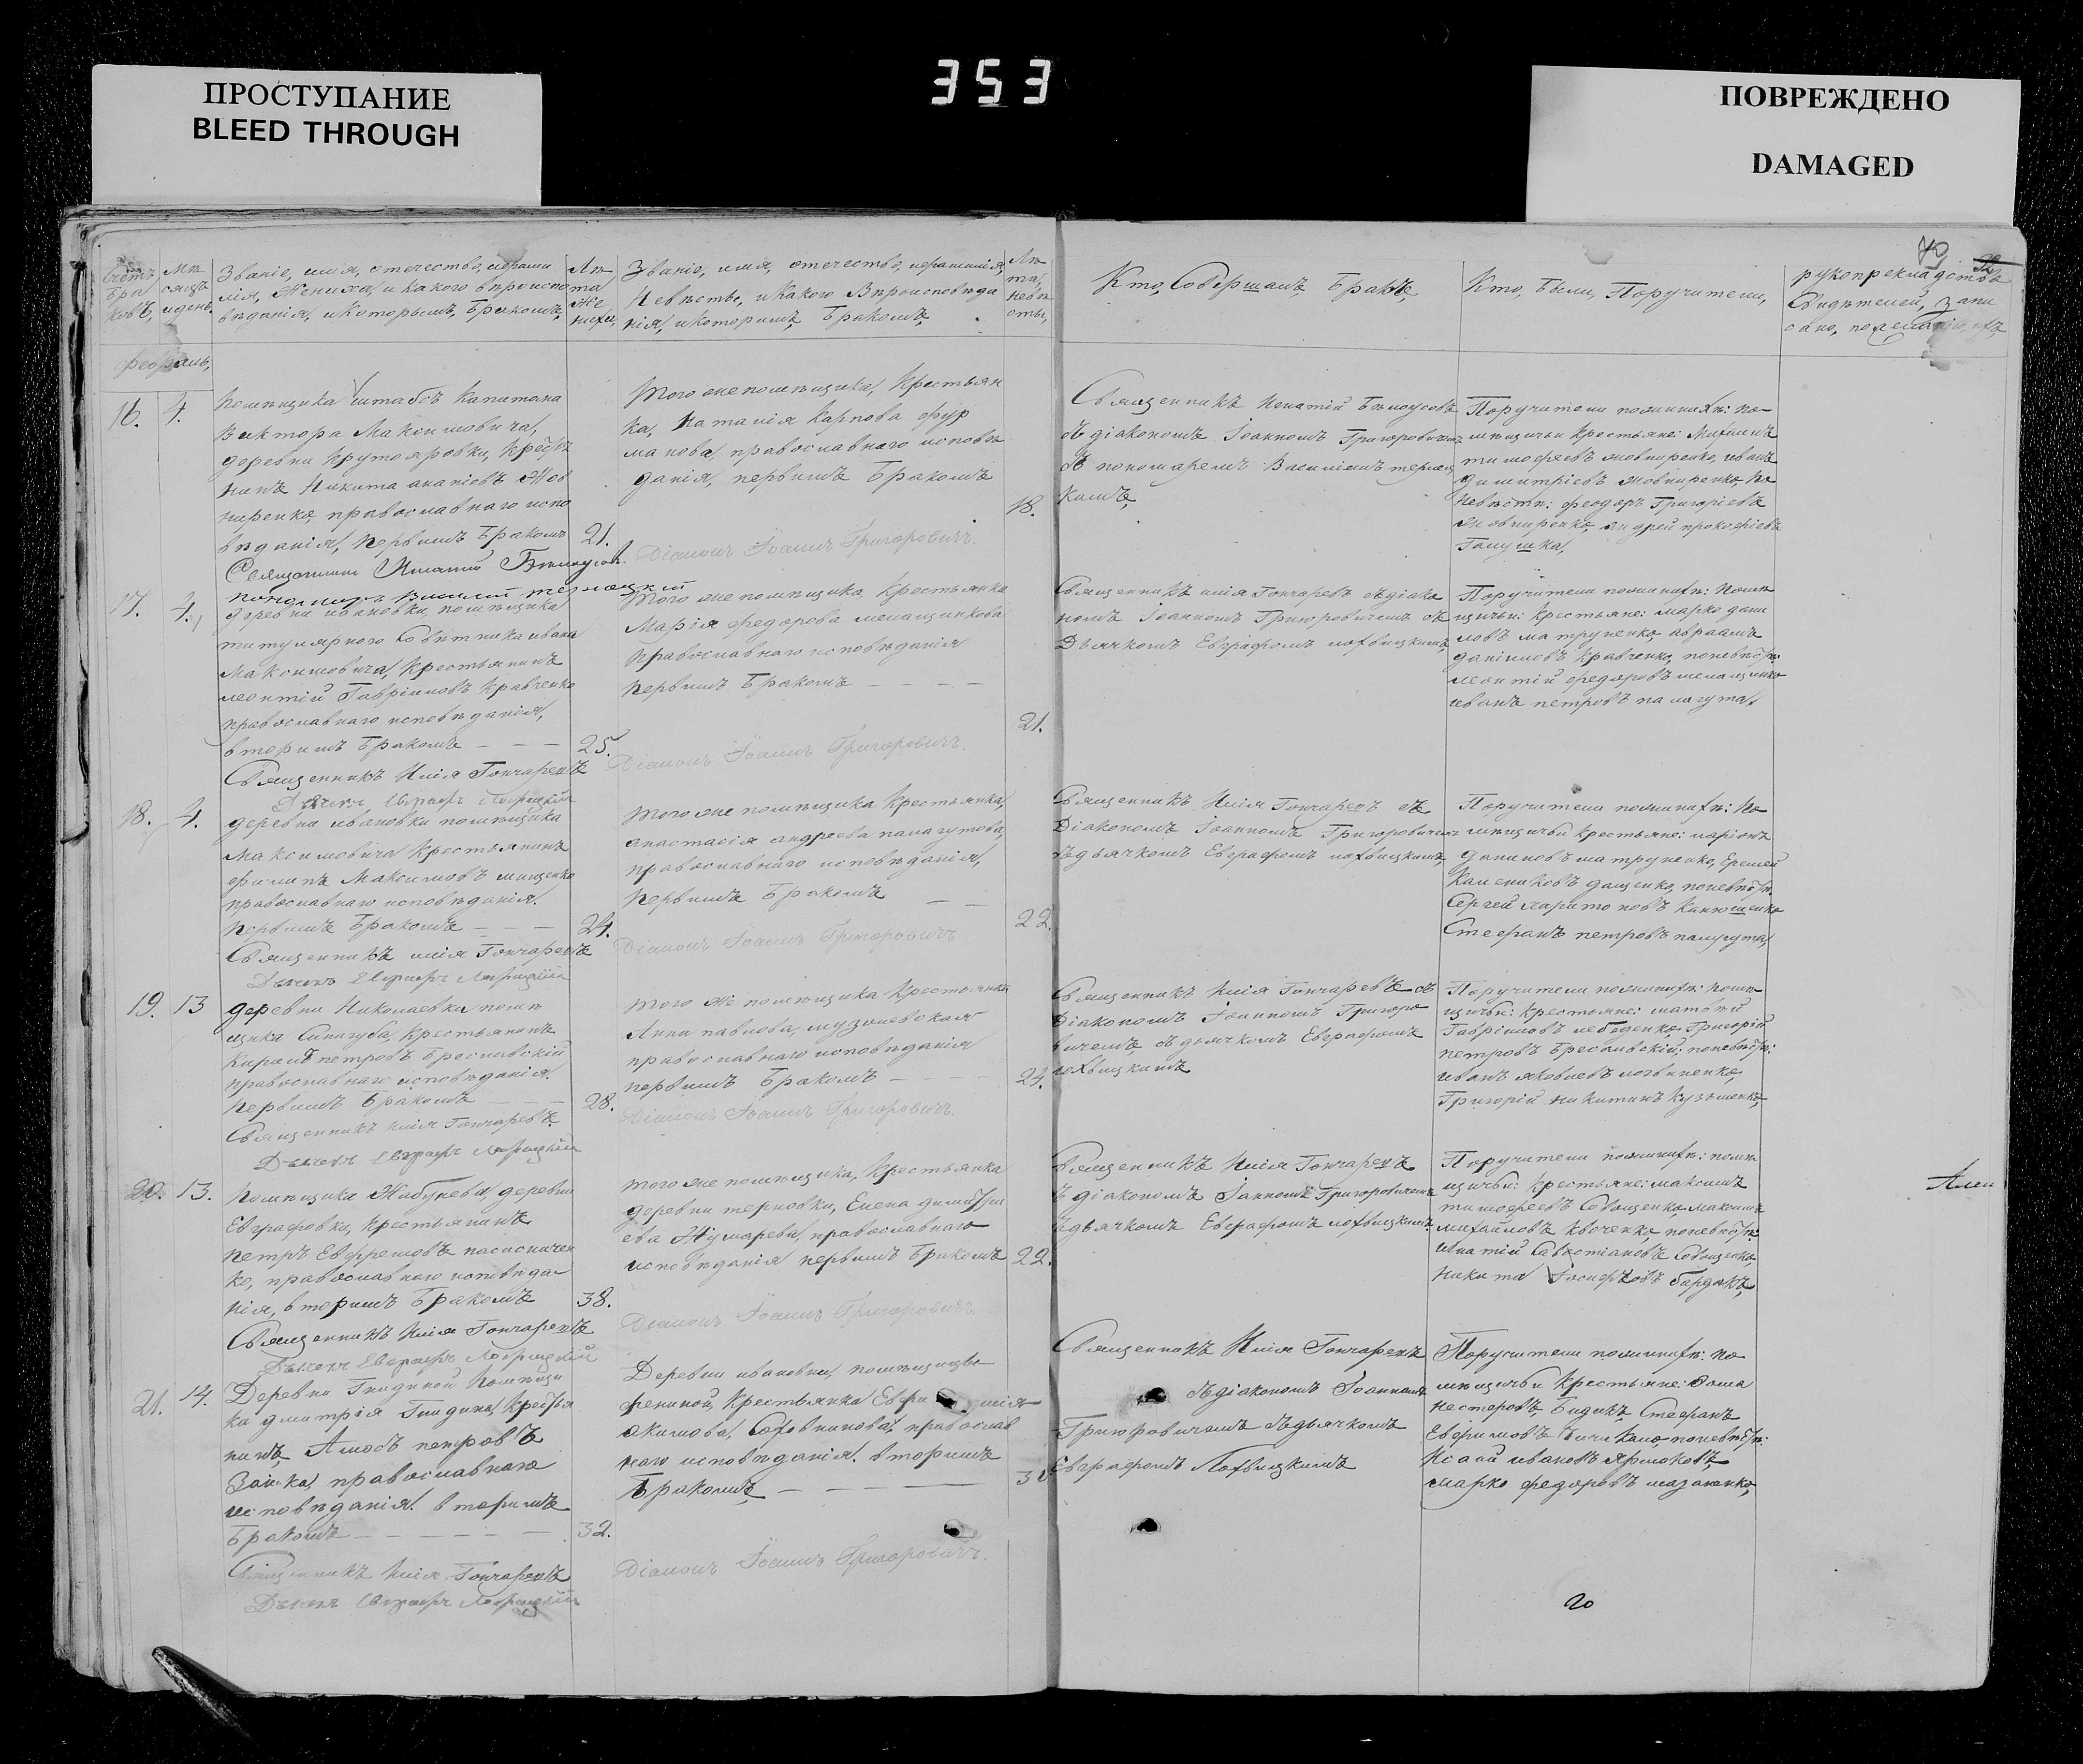 ПРОСТУПАНИЕ
BLEED THROUGH
353
ПОВРЕЖДЕНО
DAMAGED
Счетъ
бра
ковъ,
Мѣ
сяцъ
и день.
Званіе, имя, отечество, и фами
лія, Жениха, и какого вѣроиспо
вѣданія, и которымъ, Бракомъ,
Лѣ
та
Же
ниха,
Званіе, имя, отечество, и фамилія,
Невѣсты, и какого Вѣроисповѣда
нія, и которымъ, Бракомъ,
Лѣ
та,
невѣ
сты,
Кто, Совершалъ, Бракъ,
Кто, Были, Поручители,
рукоприкладство
Свидѣтелей, запи
сано, по желанію, ихъ
Февраль,
16. 4.
Помѣщика штабсъ Капитана
Виктора Максимовича,
деревни Крутояровки, Крестья
нинъ Никита ананіевъ Жов
ниренко, православнаго испо
вѣданія, первымъ Бракомъ 21.
Священникъ Игнатій Бѣлоусовъ
пономарь Василій
Того же помѣщика, Крестьян
ка, Наталія Карпова фур
манова, православнаго исповѣ
данія, первымъ Бракомъ
18.
Діаконъ Іоаннъ Григоровичъ.
Священникъ Игнатій Бѣлоусовъ
съ діакономъ Іоанномъ Григоровичемъ
съ пономаремъ Василіемъ
Поручители по женихѣ: по-
мѣщичьи крестьяне: Михаилъ
тимофѣевъ жовниренко, иванъ
димитріевъ жовниренко, по
невѣстѣ: феодоръ Григоріевъ
жовниренко, андрей прокофіевъ
Галушка,
17. 4.
деревни ивановки, помѣщика
титулярнаго Совѣтника ивана
Максимовича, крестьянинъ
леонтій Гавріиловъ Кравченко
православнаго исповѣданія,
вторымъ Бракомъ 25.
Священникъ Илія Гончаревъ
Дьячекъ Евграфъ Лохвицкій
Того же помѣщика Крестьянка
Марія федорова
православнаго исповѣданія
первымъ Бракомъ
21.
Діаконъ Іоаннъ Григоровичъ.
Священникъ илія Гончаревъ съ діако
номъ Іоанномъ Григоровичемъ съ
Дьячкомъ Евграфомъ лохвицкимъ,
Поручители по женихѣ: помѣ
щичьи: крестьяне: марко дани
ловъ матруненко, авраамъ
даніиловъ Кравченко, по невѣстѣ:
леонтій федоровъ
иванъ петровъ палагута,
18. 4.
деревни ивановки помѣщика
Максимовича крестьянинъ
филипъ Максимовъ мищенко
православнаго исповѣданія.
первымъ Бракомъ 24.
Священникъ илія Гончаревъ
Дьячекъ Евграфъ Лохвицкій
Того же помѣщика крестьянка,
анастасія андреева палагутова,
православнаго исповѣданія,
первымъ Бракомъ
22.
Діаконъ Іоаннъ Григоровичъ
Священникъ Илія Гончаревъ съ
Діакономъ Іоанномъ Григоровичемъ
съ дьячкомъ Евграфомъ лохвицкимъ,
Поручители по женихѣ: по
мѣщичьи крестьяне: ларіонъ
даниловъ матруненко,
дащенко, по невѣстѣ:
Сергей харитоновъ
Стефанъ петровъ палагута,
19. 13
деревни Николаевки помѣ
щика Синегуба, крестьянинъ
Кирилъ петровъ Бреславскій
православнаго исповѣданія.
первымъ Бракомъ 28.
Священникъ илія Гончаревъ
Дьячекъ Евграфъ Лохвицкій
Того же помѣщика Крестьянка
Анна павлова,
православнаго исповѣданія
первымъ Бракомъ
24.
Діаконъ Іоаннъ Григоровичъ.
Священникъ Илія Гончаревъ съ
Діакономъ Іоанномъ Григоро
вичемъ, съ дьячкомъ Евграфомъ
лохвицкимъ
Поручители по женихѣ: помѣ
щичьи: крестьяне: матвѣй
Гавріиловъ лебеденко, Григорій
петровъ Бреславскій; по невѣстѣ:
иванъ яковлевъ логвиненко,
Григорій никитинъ Кузьменко,
20. 13.
Помѣщика Кибукева, деревни
Евграфовки, крестьянинъ
петръ Евфремовъ
ко, православнаго исповѣда-
нія, вторымъ Бракомъ 38.
Священникъ Илія Гончаревъ
Дьячекъ Евграфъ Лохвицкій
того же помѣщика, Крестьянка
деревни терновки, Елена димитрі
ева православнаго
исповѣданія первымъ Бракомъ 22.
Діаконъ Іоаннъ Григоровичъ.
Священникъ Илія Гончаревъ
съ діакономъ Іоанномъ Григоровичемъ
съ дьячкомъ Евграфомъ лохвицкимъ.
Поручители по женихѣ: помѣ
щичьи: крестьяне: максимъ
тимофѣевъ максимъ
михайловъ Квоченко, по невѣстѣ:
игнатій
никита Іосифовъ Бардакъ,
21. 14.
Деревни Гнидиной помѣщи
ка дмитрія Гнидина, крестья
нинъ, Амосъ петровъ
Заика, православнаго
исповѣданія. вторымъ
Бракомъ 32.
Священникъ илія Гончаревъ
Дьячекъ Евграфъ Лохвицкій
Деревни ивановки, помѣщицы
крестьянка
православ
наго исповѣданія. вторымъ
Бракомъ
Діаконъ Іоаннъ Григоровичъ.
Священникъ Илія Гончаревъ
съ діакономъ Іоанномъ
Григоровичемъ съ дьячкомъ
Евграфомъ Лохвицкимъ
Поручители по женихѣ: по
мѣщичьи крестьяне: Фома
нестеровъ, Бидикъ, Стефанъ
Евфимовъ по невѣстѣ:
Исаій ивановъ
марко федоровъ мазаненко,
20